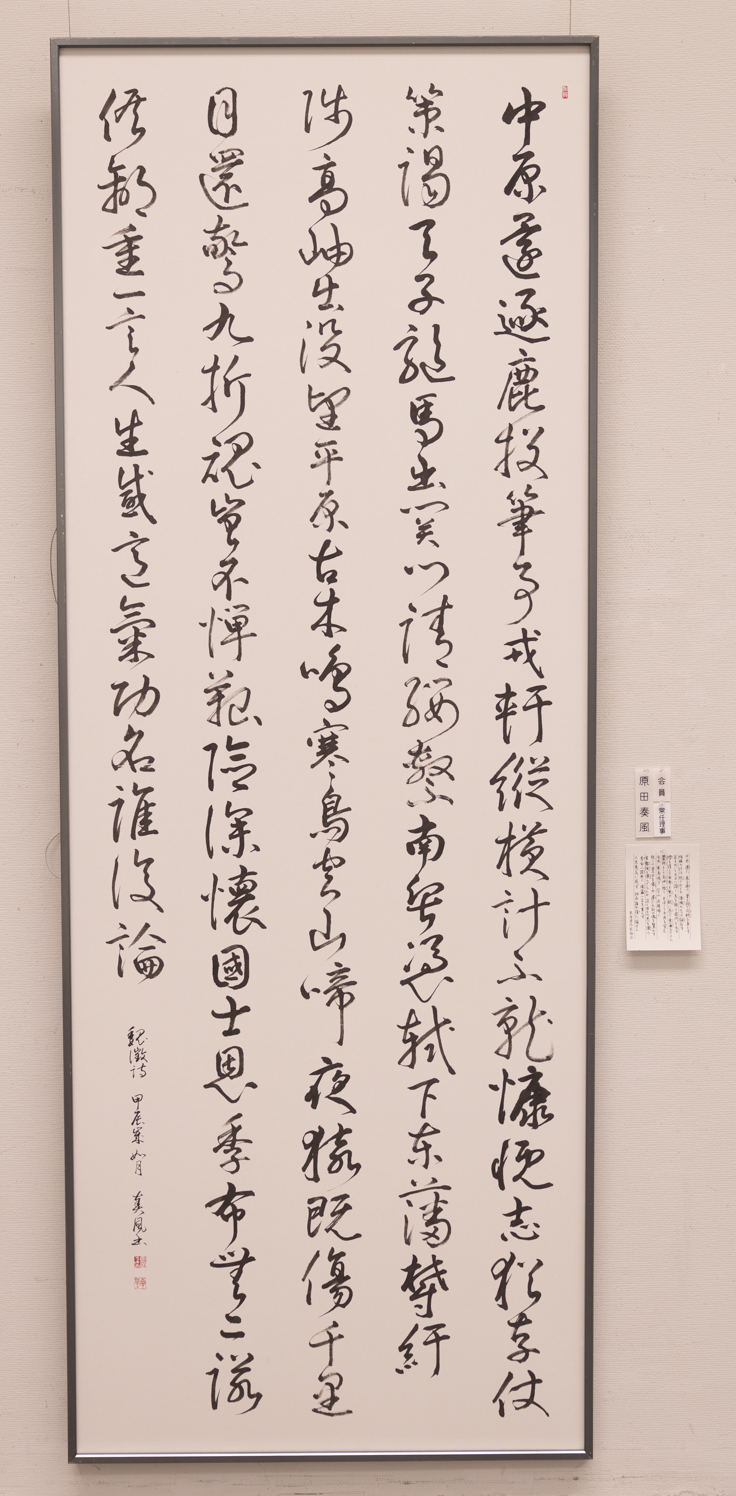 中原還逐鹿投筆事戎軒縱横計不就慷慨志猶存仗
策謁天子驅馬出関門請纓繋南粤憑軾下東藩鬱紆
陟高岫出没望平原古木鳴寒鳥空山啼夜猿既傷千里
目還驚九折魂豈不憚艱險深懷國士恩季布無二諾
侯嬴重一言人生感意氣功名誰復論
魏徴詩 甲辰 如月 奏風書
会員 常任理事
原田奏風